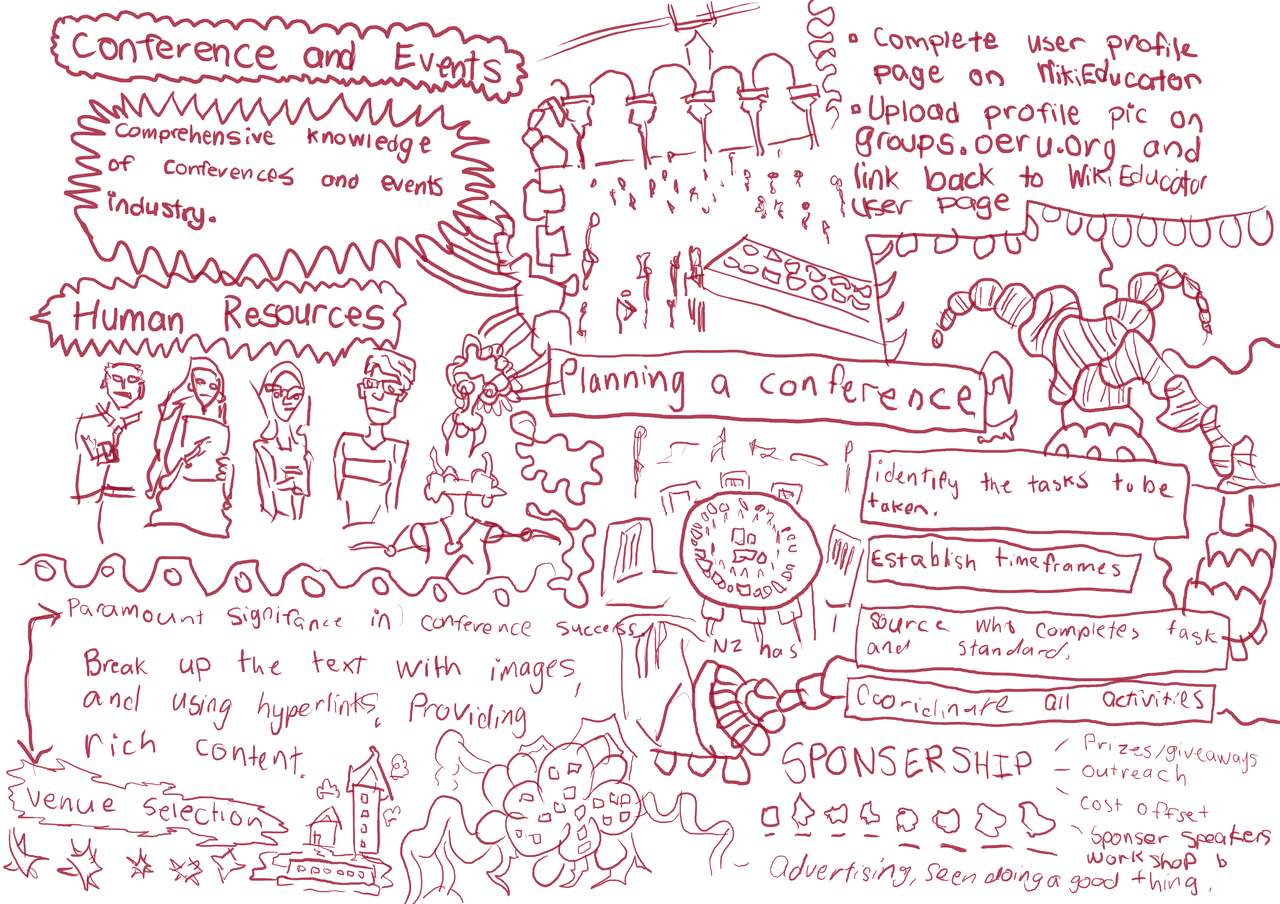 Conference and Events
Comprehensive knowledge
of conferences and events
industry.
Human Resources
• Complete user profile
page on WikiEducator
• Upload profile pic on
groups.oeru.org and
link back to WikiEducator
user page
Planning a conference
identify the tasks to be
taken.
Establish timeframes
Source who completes task
and standard.
Cooridinate all activities
NZ has
Paramount signifance in conference success.
Break up the text with images,
and using hyperlinks. Providing
rich content.
Venue selection
SPONSERSHIP
/ Prizes/giveaways
- outreach
\ Cost offset
\ Sponser speakers
workshop b
- Advertising, seen doing a good thing.